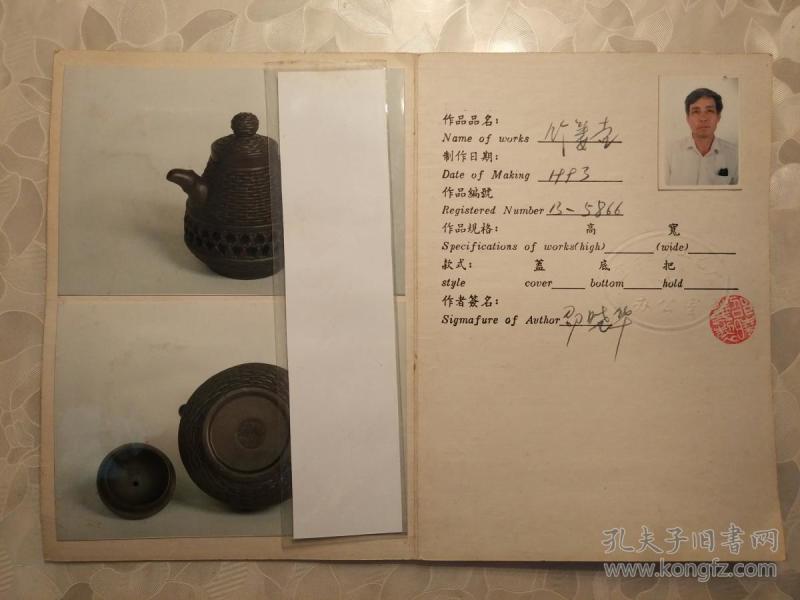 作品品名：
Name of works 竹篓壶
制作日期：
Date of Making 1993
作品編號
Registered Number B-5866
作品規格： 高 寬
Specifications of works(high) (wide)
款式： 蓋 底 把
style cover bottom hold
作者簽名：
Sigmafure of Avthor 邵晓华
办公室
孔夫子旧书网
www.kongfz.com